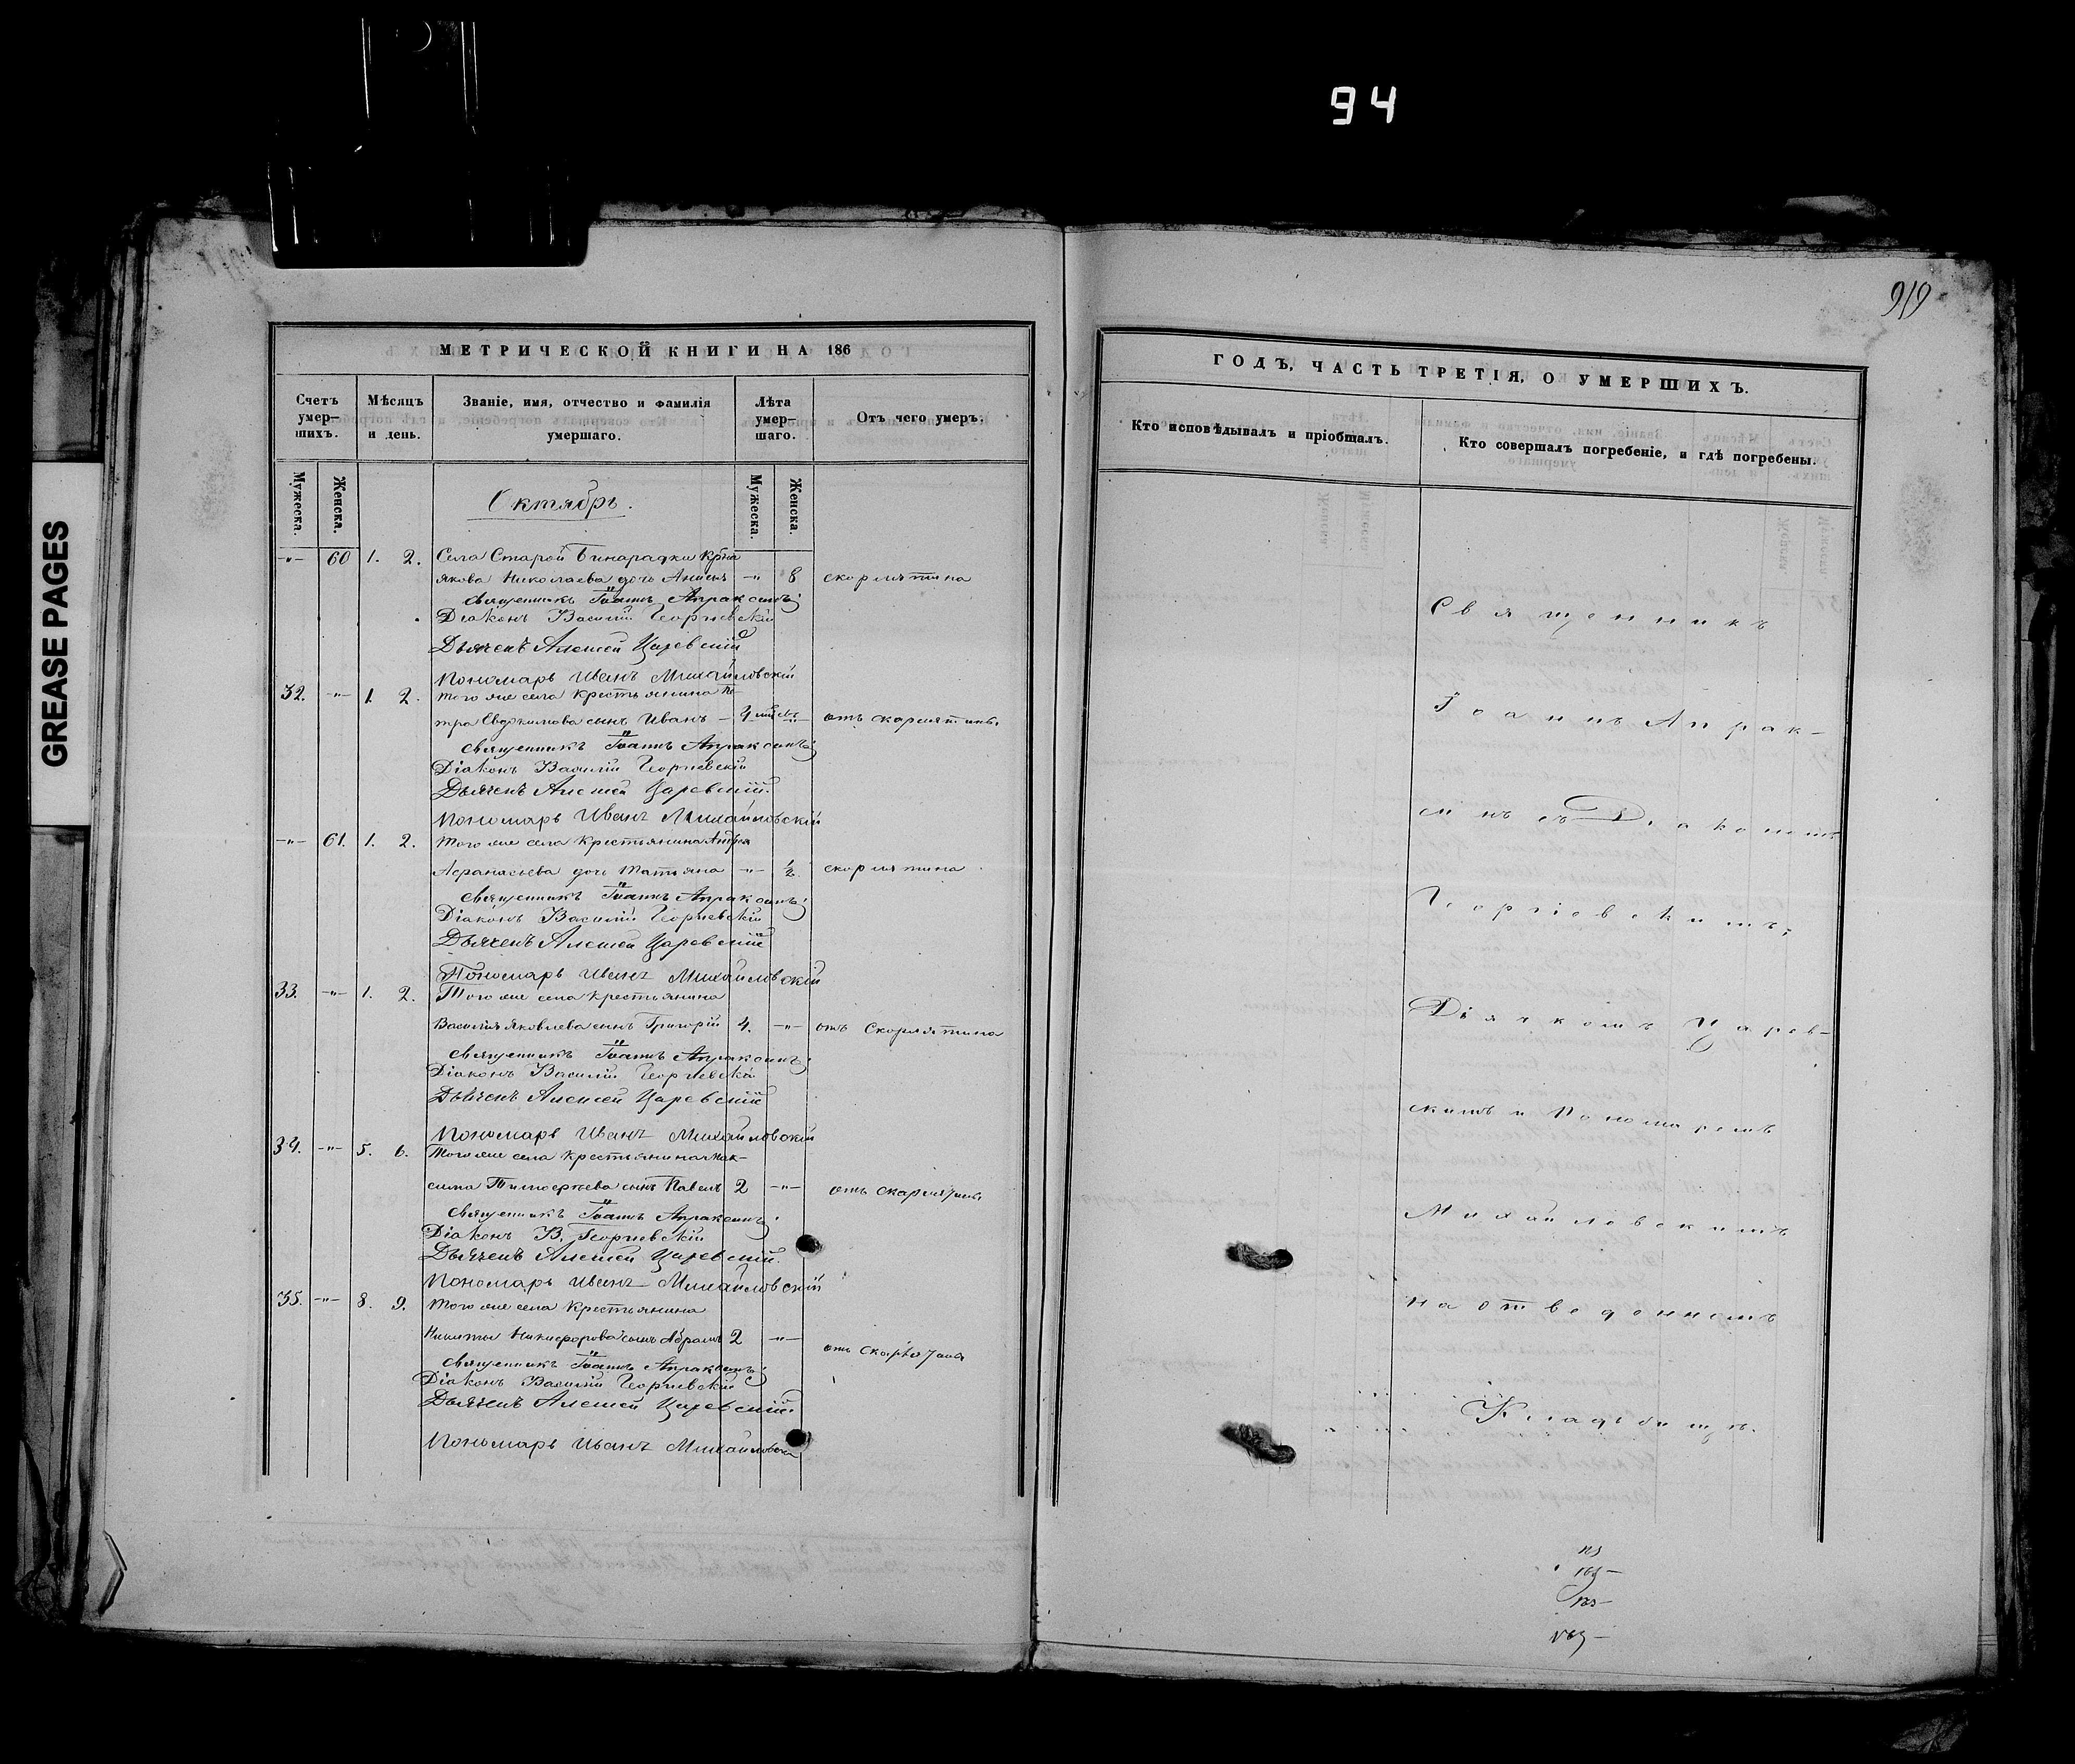 94
919
GREASE PAGES
МЕТРИЧЕСКОЙ КНИГИ НА 186
Счетъ умер-шихъ.
Мѣсяцъ и день.
Званіе, имя, отчество и фамилія умершаго.
Лѣта умер-шаго.
Отъ чего умеръ.
Мужеска.
Женска.
Мужеска.
Женска.
Октябрь.
-"- 60 1. 2. Села Старой Бинарадки Крна
Якова Николаева дочь Анисья -"- 8 скорлятина
Священникъ Іоаннъ Апраксинъ;
Діаконъ Василій Георгіевскій
Дьячекъ Алексей Царевскій
Пономарь Иванъ Михайловскій
32. -"- 1. 2. Того же села Крестьянина Пе-
тра Евдокимова сынъ Иванъ отъ скарлятины
Священникъ Іоаннъ Апраксинъ;
Діаконъ Василій Георгіевскій
Дьячекъ Алексей Царевскій.
Пономарь Иванъ Михайловскій
-"- 61. 1. 2. Того же села Крестьянина Андрея
Афанасьева дочь Татьяна -"- ½ скорлятина
Священникъ Іоаннъ Апраксинъ;
Діаконъ Василій Георгіевскій
Дьячекъ Алексей Царевскій
Пономарь Иванъ Михайловскій
33. -"- 1. 2. Того же села Крестьянина
Василія Яковлева сынъ Григорій 4. -"- отъ Скорлятина
Священникъ Іоаннъ Апраксинъ;
Діаконъ Василій Георгіевскій
Дьячекъ Алексей Царевскій
Пономарь Иванъ Михайловскій
34. -"- 5. 6. Того же села Крестьянина Мак-
сима Тимофеева сынъ Павелъ 2 -"- отъ скарлятины
Священникъ Іоаннъ Апраксинъ;
Діаконъ В. Георгіевскій
Дьячекъ Алексей Царевскій.
Пономарь Иванъ Михайловскій
35. -"- 8. 9. Того же села Крестьянина
Никиты Никифорова сынъ Абрамъ 2 -"- отъ
Священникъ Іоаннъ Апраксинъ;
Діаконъ Василій Георгіевскій
Дьячекъ Алексей Царевскій.
Пономарь Иванъ Михайловскій
ГОДЪ, ЧАСТЬ ТРЕТІЯ, О УМЕРШИХЪ.
Кто исповѣдывалъ и пріобщалъ.
Кто совершалъ погребеніе, и гдѣ погребены.
Священникъ
Іоаннъ Апрак-
синъ съ Діакономъ
Георгіевскимъ,
Дьячкомъ Царев-
скимъ и Пономаремъ
Михайловскимъ
на отведенномъ
Кладбищѣ.